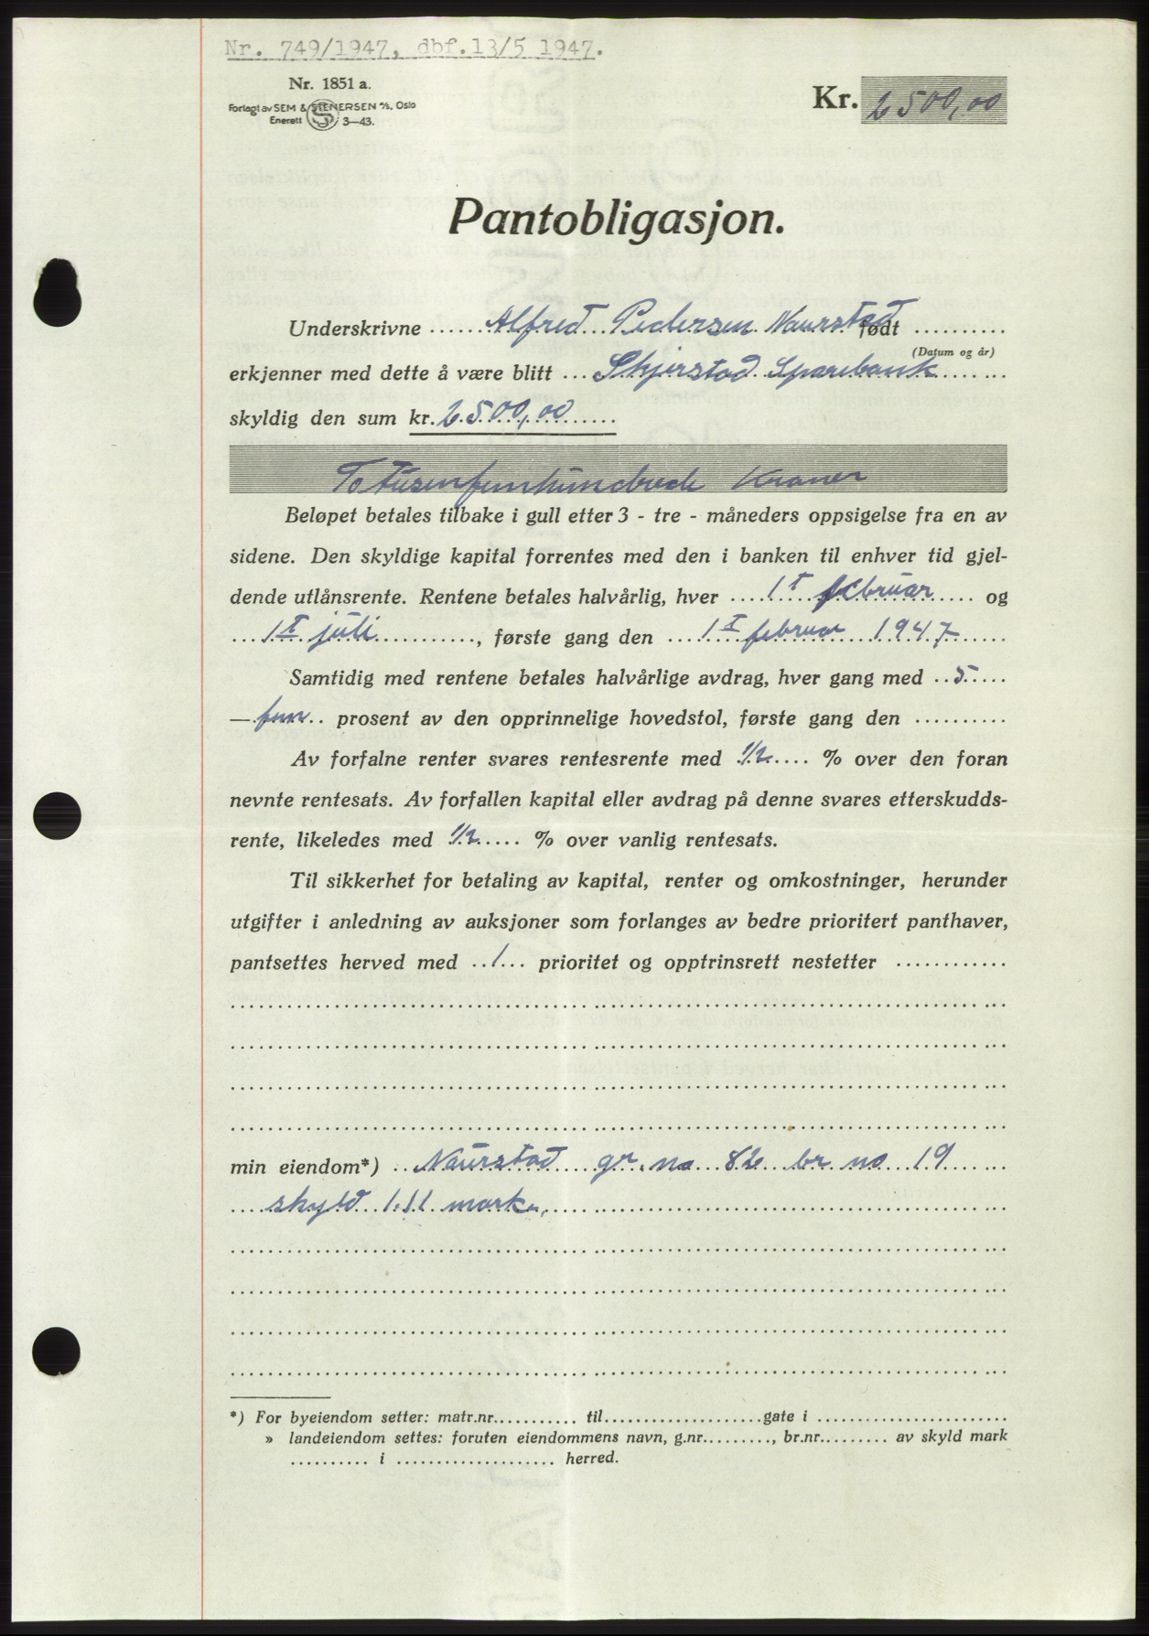 Nr. 749/1947, dbf. 13/5 1947.
Nr. 1851 a.
Forlagt av SEM & STENERSEN A/S, Oslo
Enerett S 3—43.
Kr. 2500,00
Pantobligasjon.
Underskrivne ...... Alfred Pedersen Naurstad født ..........
(Datum og år)
erkjenner med dette å være blitt ... Skjerstad Sparebank ......
skyldig den sum kr. 2500,00 ......
Totusenfemhundrede Kroner
Beløpet betales tilbake i gull etter 3 - tre - måneders oppsigelse fra en av
sidene. Den skyldige kapital forrentes med den i banken til enhver tid gjel-
dende utlånsrente. Rentene betales halvårlig, hver .... 1st februar ..... og
... 1st juli .........., første gang den ... 1st februar 1947 ......
Samtidig med rentene betales halvårlige avdrag, hver gang med .. 5 .....
— fem .. prosent av den opprinnelige hovedstol, første gang den ..........
Av forfalne renter svares rentesrente med 1/2 .... % over den foran
nevnte rentesats. Av forfallen kapital eller avdrag på denne svares etterskudds-
rente, likeledes med 1/2 ..... % over vanlig rentesats.
Til sikkerhet for betaling av kapital, renter og omkostninger, herunder
utgifter i anledning av auksjoner som forlanges av bedre prioritert panthaver,
pantsettes herved med .. 1 ... prioritet og opptrinsrett nestetter ............
min eiendom*) .. Naurstad gr. no 82 br no 19 ......
.... skyld 1.11 mark. ......
*) For byeiendom setter: matr.nr........... til.....................gate i .........................
» landeiendom settes: foruten eiendommens navn, g.nr.........., br.nr.......... av skyld mark
.......... i .................... herred.